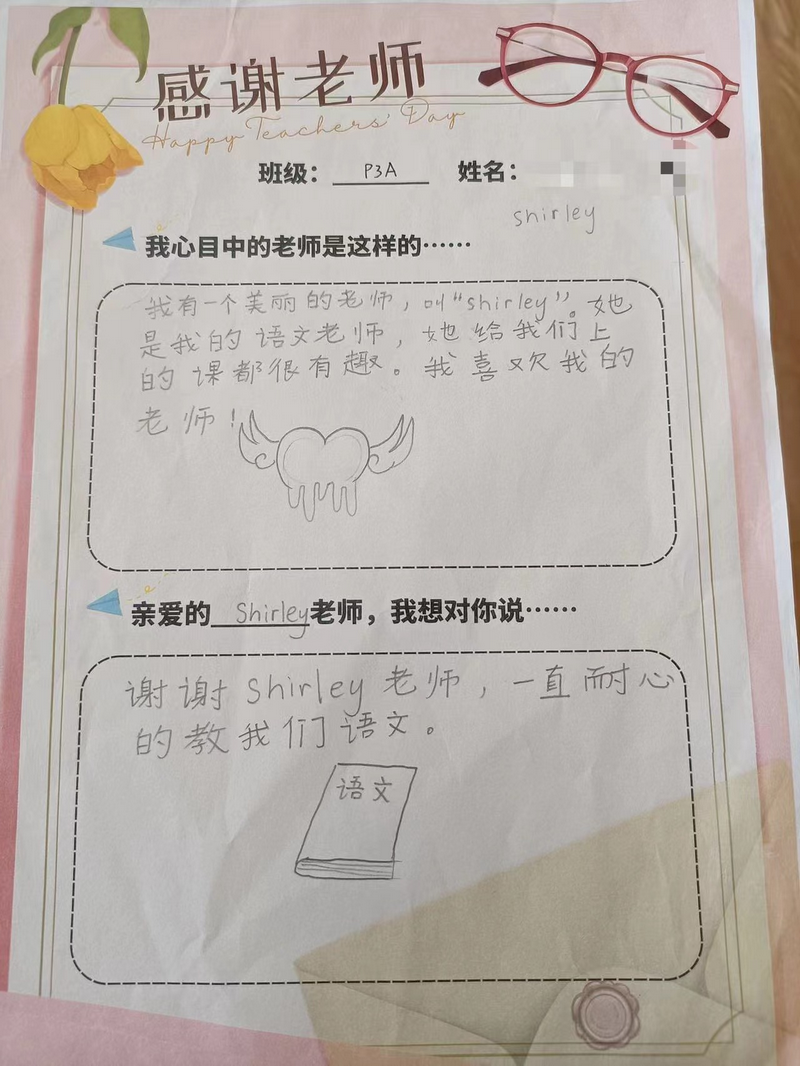 感谢老师
Happy Teachers' Day
班级： P3A 姓名：
shirley
我心目中的老师是这样的……
我有一个美丽的老师，叫“shirley”。她
是我的语文老师，她给我们上
的课都很有趣。我喜欢我的
老师！
亲爱的 Shirley老师，我想对你说……
谢谢 Shirley 老师，一直耐心
的教我们语文。
语文